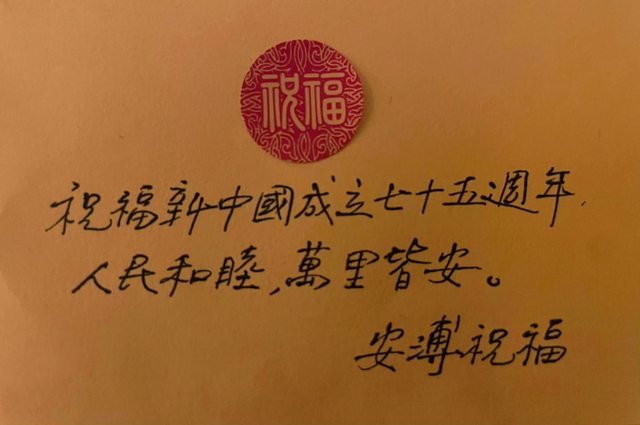 祝福
祝福新中國成立七十五週年,
人民和睦,萬里皆安。
安溥祝福